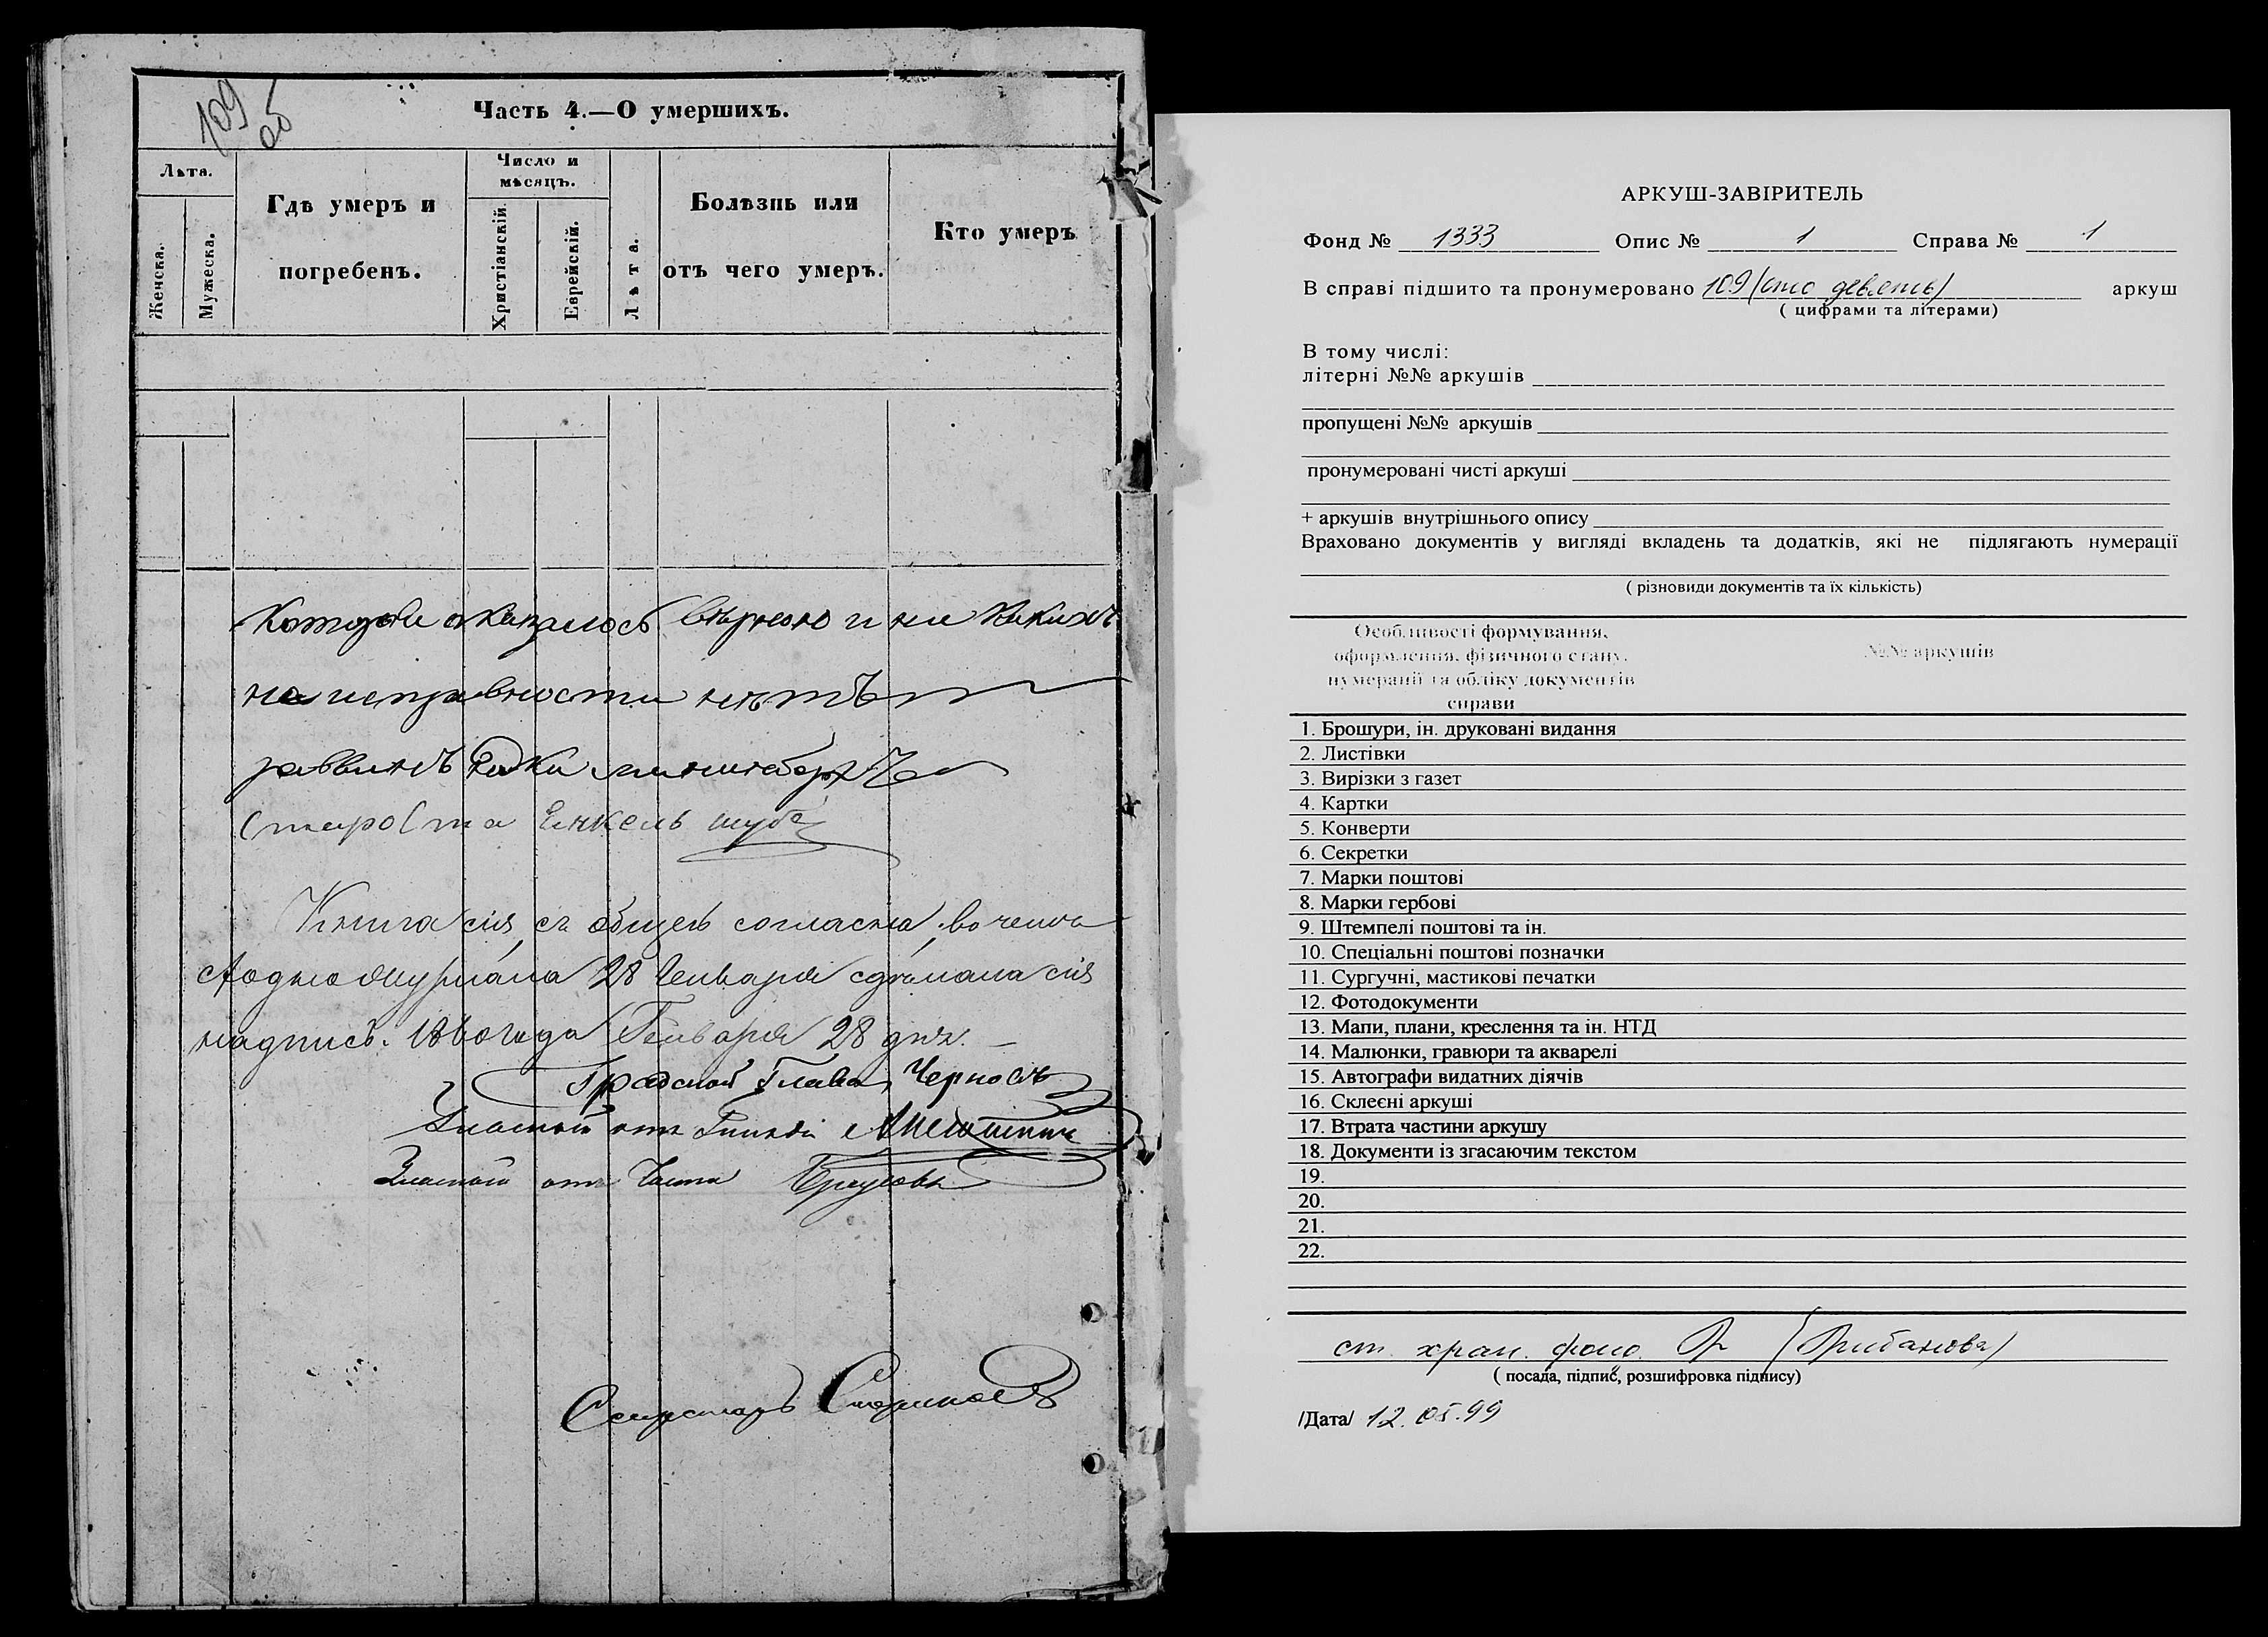 109
об
Часть 4.—О умершихъ.
Лѣта.
Женска.
Мужеска.
Гдѣ умеръ и
погребенъ.
Число и
мѣсяцъ.
Христіанскій.
Еврейскій.
Лѣта.
Болѣзнь или
отъ чего умеръ.
Кто умеръ
оказалось вѣрною и ни какихъ
неисправности нѣтъ
раввинъ
Староста Енкель шуба
Книга сія съ общею согласна, во чемъ
28 Генваря сдѣлана сія
надпись. года Генваря 28 дня. —
Градской Глава
Гласной отъ
Гласной отъ
Секретарь
АРКУШ-ЗАВІРИТЕЛЬ
Фонд № 1333 Опис № 1 Справа № 1
В справі підшито та пронумеровано 109 (сто девять) аркуш
( цифрами та літерами)
В тому числі:
літерні №№ аркушів
пропущені №№ аркушів
пронумеровані чисті аркуші
+ аркушів внутрішнього опису
Враховано документів у вигляді вкладень та додатків, які не підлягають нумерації
( різновиди документів та їх кількість)
Особливості формування,
оформлення, фізичного стану,
нумерації та обліку документів
справи
№№ аркушів
1. Брошури, ін. друковані видання
2. Листівки
3. Вирізки з газет
4. Картки
5. Конверти
6. Секретки
7. Марки поштові
8. Марки гербові
9. Штемпелі поштові та ін.
10. Спеціальні поштові позначки
11. Сургучні, мастикові печатки
12. Фотодокументи
13. Мапи, плани, креслення та ін. НТД
14. Малюнки, гравюри та акварелі
15. Автографи видатних діячів
16. Склеєні аркуші
17. Втрата частини аркушу
18. Документи із згасаючим текстом
19.
20.
21.
22.
ст. хран. фонд.
( посада, підпис, розшифровка підпису)
/Дата/ 12.05.99